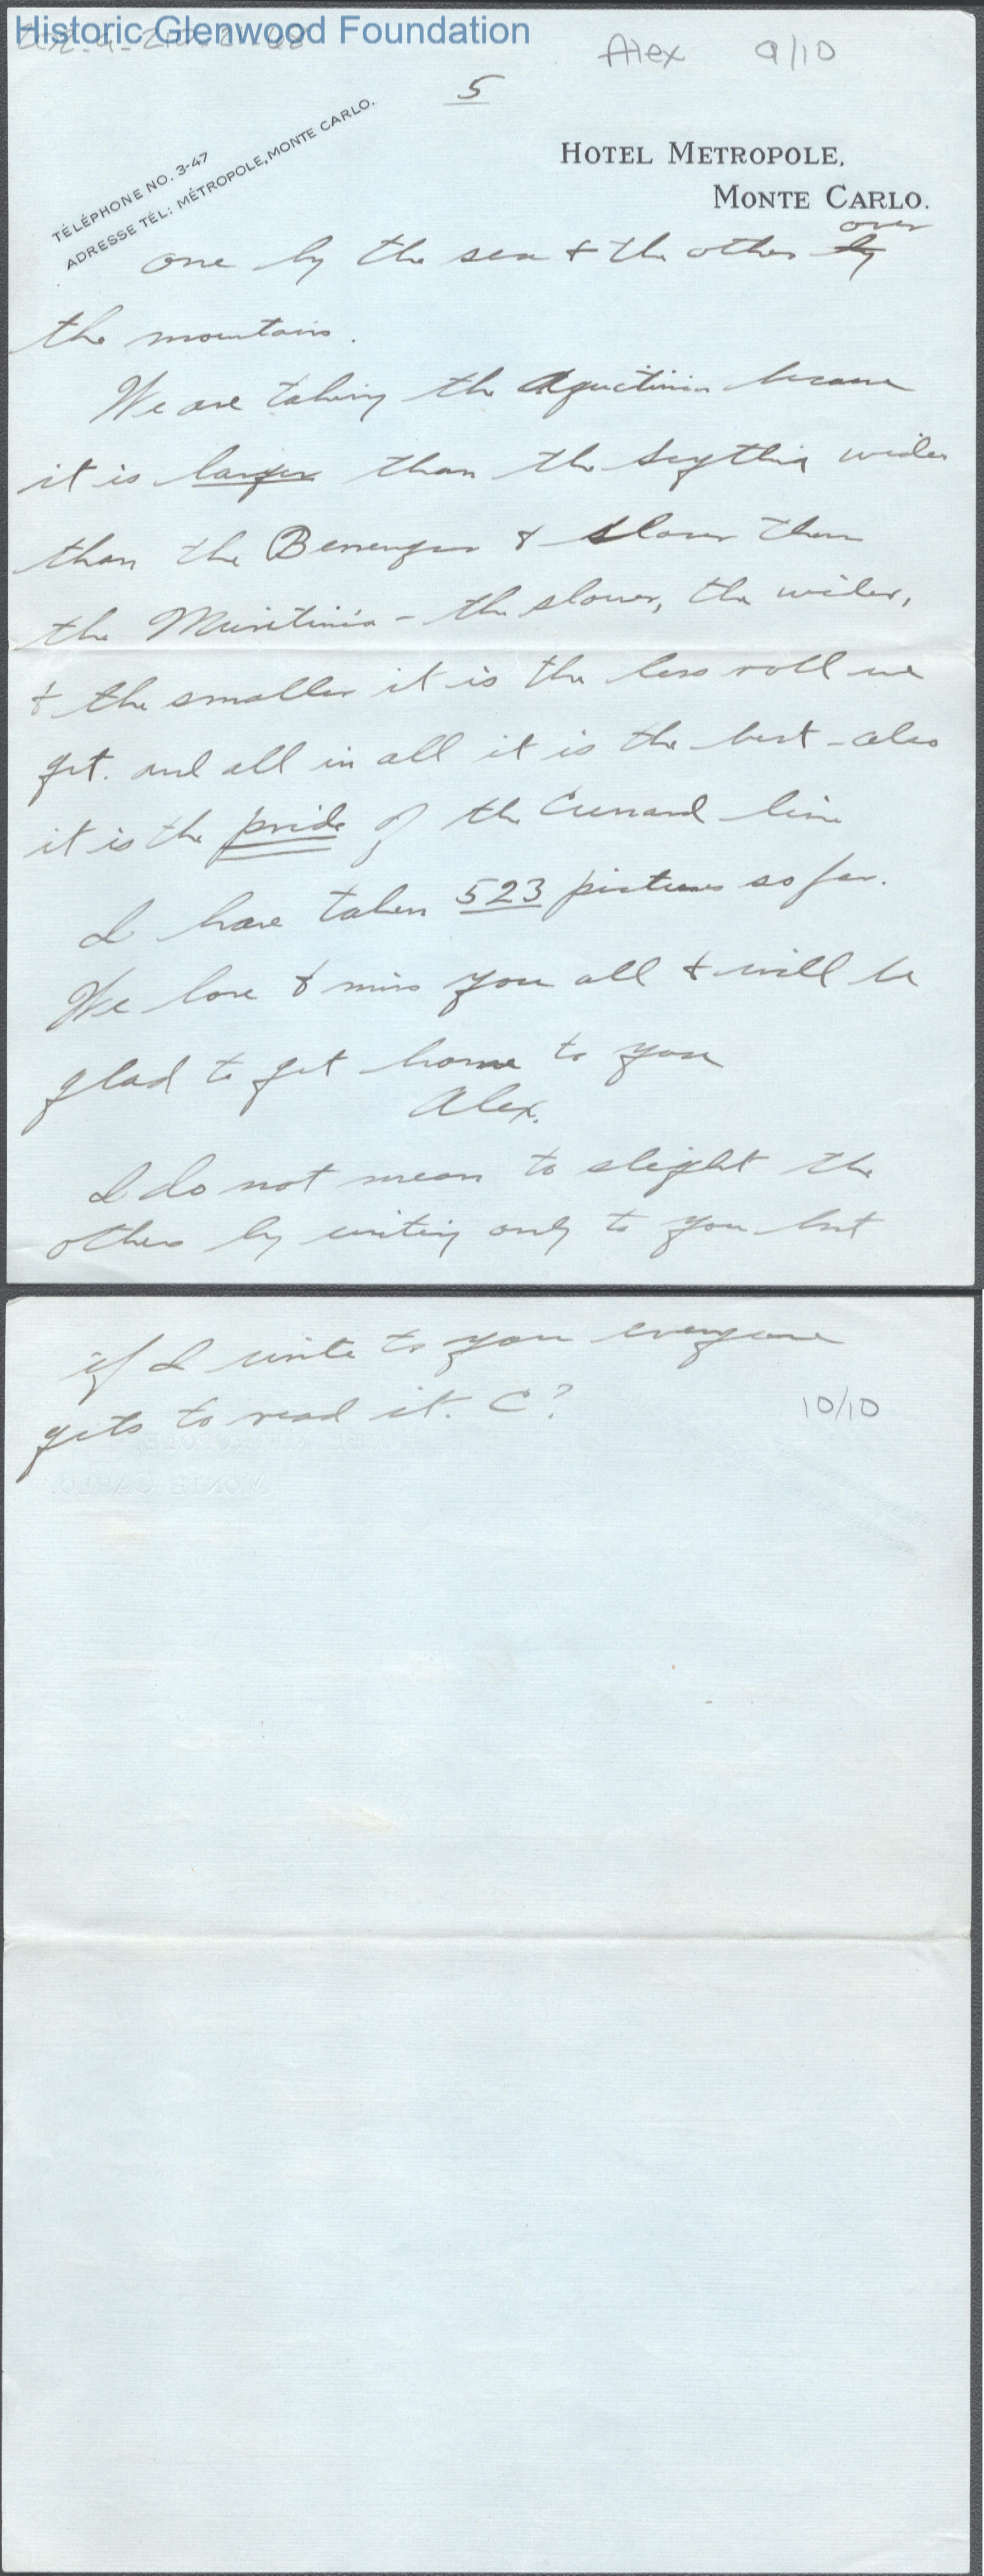 Historic Glenwood Foundation
Alex 9/10
5
TÉLÉPHONE NO. 3-47
ADRESSE TÉL: MÉTROPOLE, MONTE CARLO.
HOTEL METROPOLE,
MONTE CARLO.
over
one by the sea & the other by
the mountains.
We are taking the Aquitinia because
it is larger than the Scythia wider
than the Berengar & slower than
the Muritinia - the slower, the wider,
& the smaller it is the less roll we
get. and all in all it is the best - also
it is the pride of the Cunard line
I have taken 523 pictures so far.
We love & miss you all & will be
glad to get home to you
Alex.
I do not mean to slight the
others by writing only to you but
if I write to you everyone
gets to read it. C?
10/10